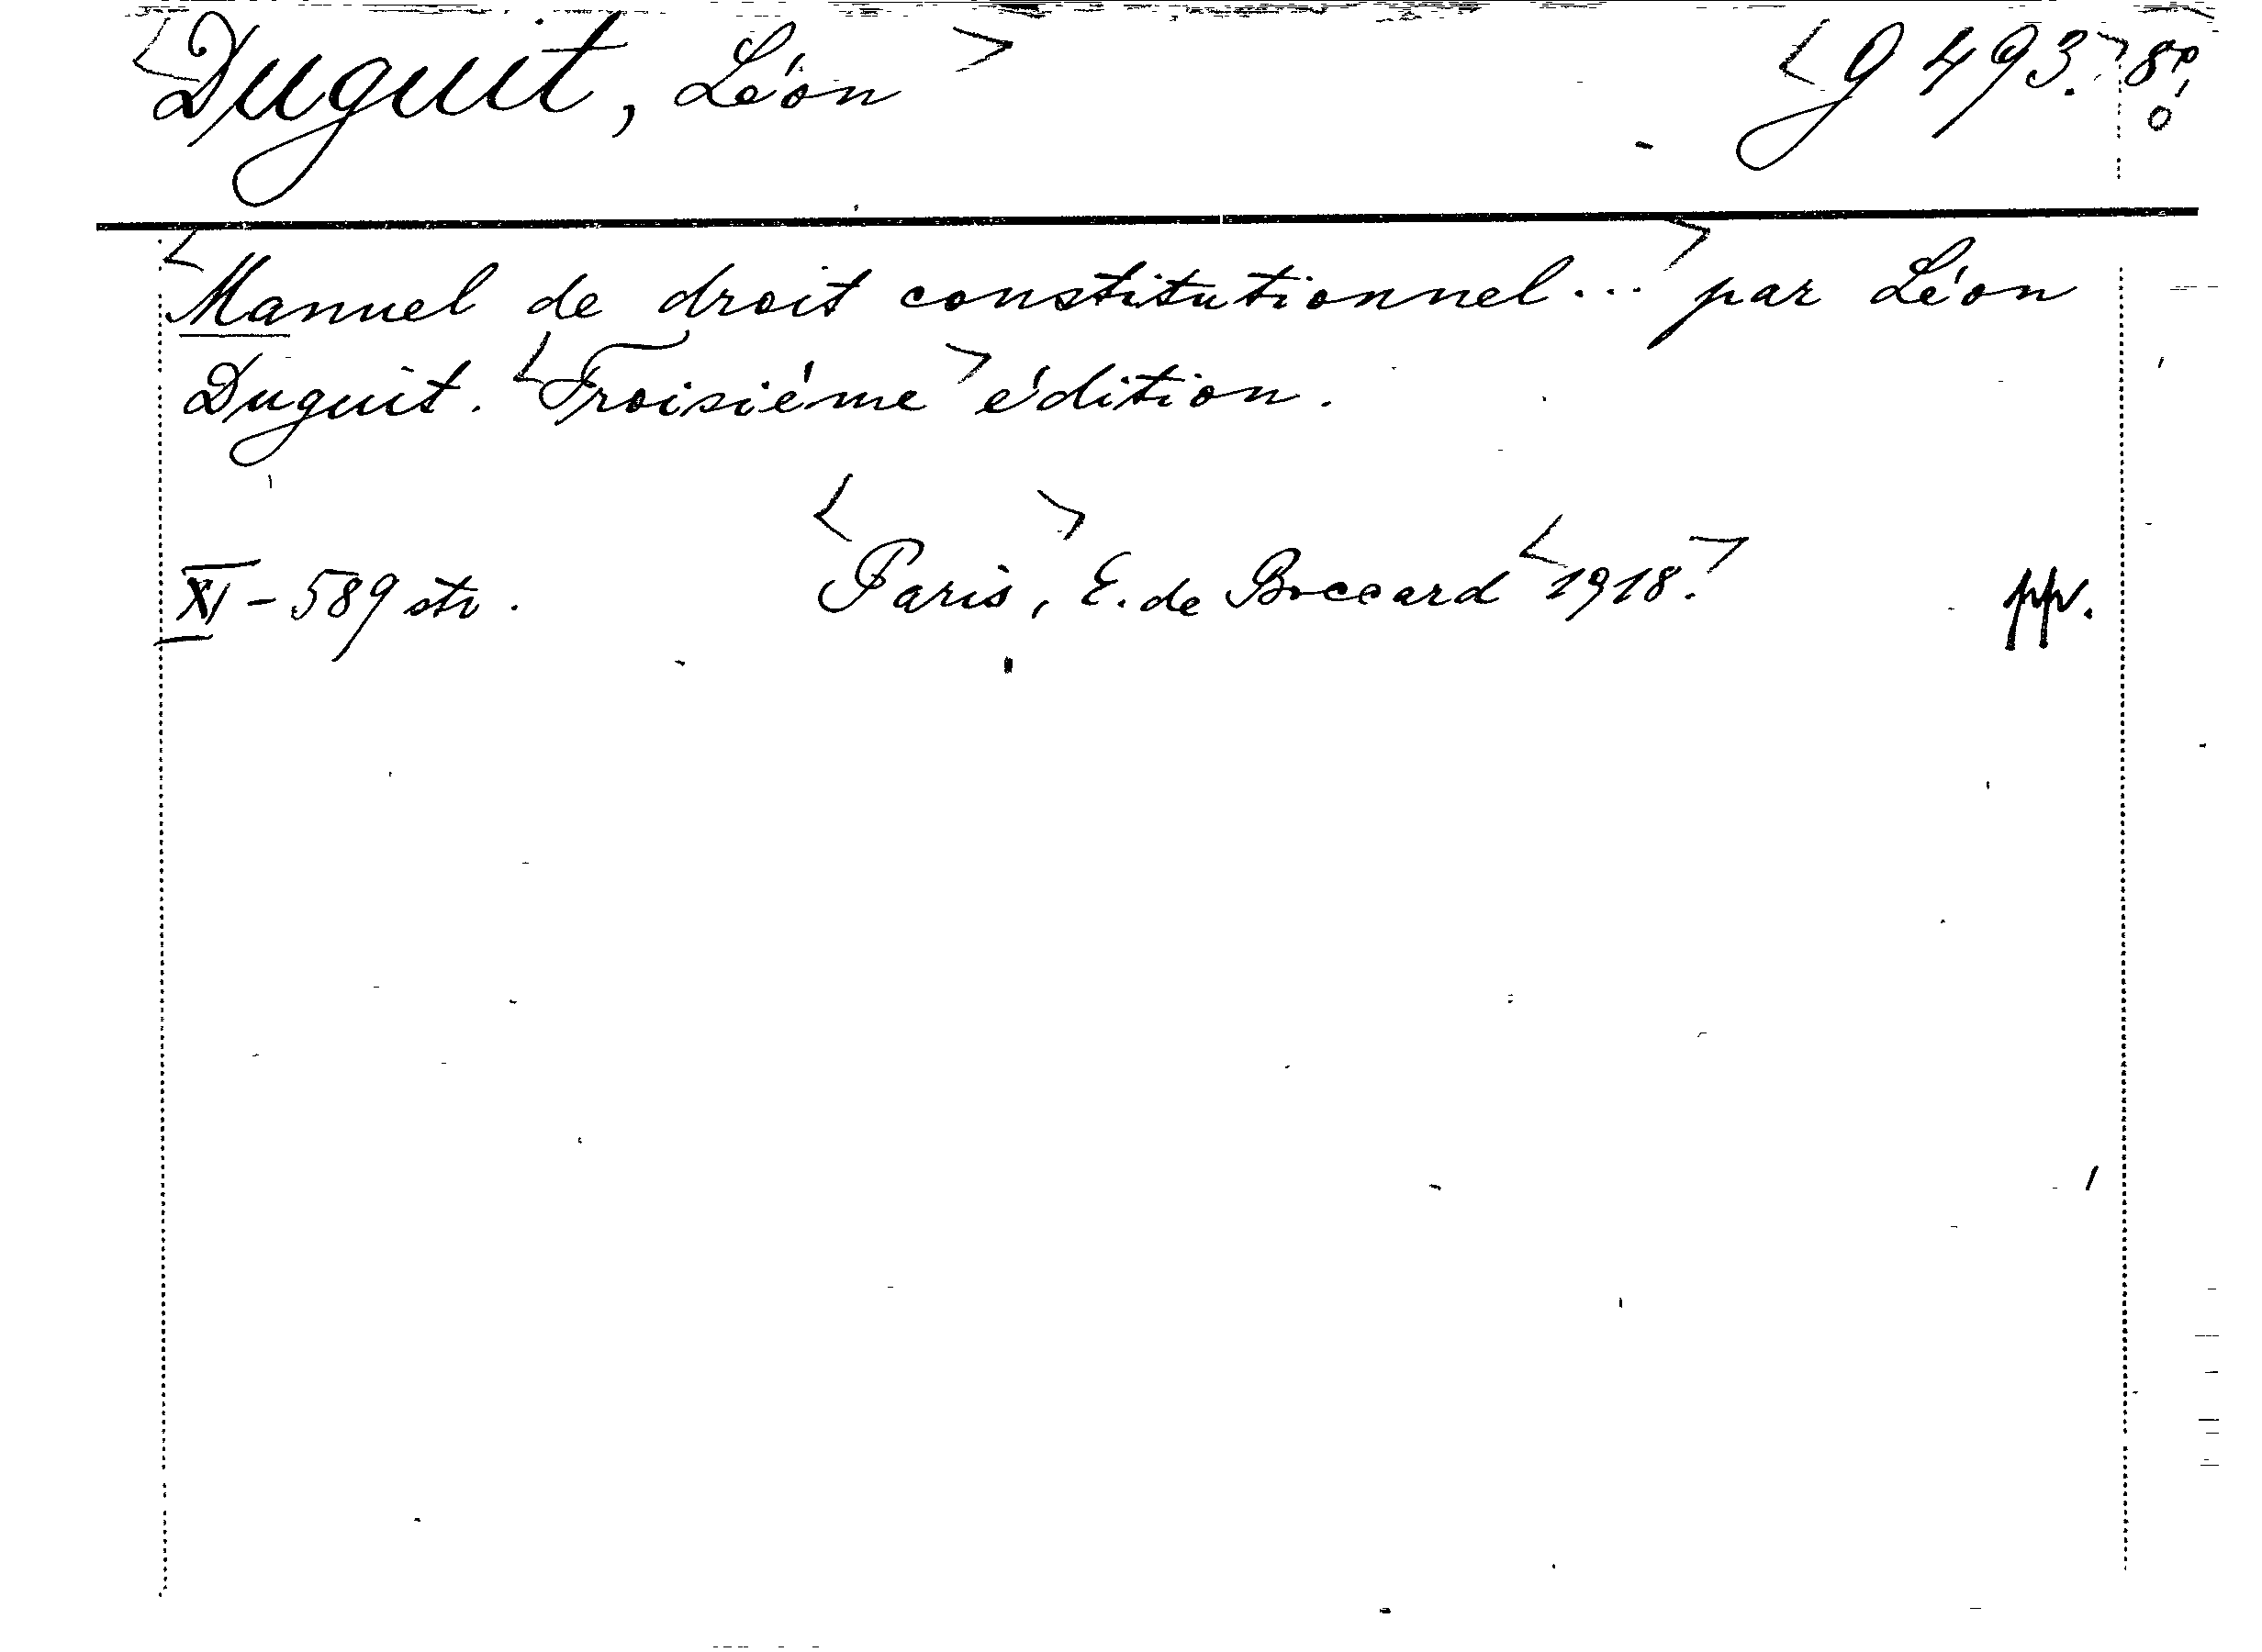 <Duguit, Léon> <g 493.> 8°.
<Manuel de droit constitutionnel...> par Léon
Duguit. <Troisiéme> édition.
XI - 589 str. <Paris>, E. de Boccard <1918.>